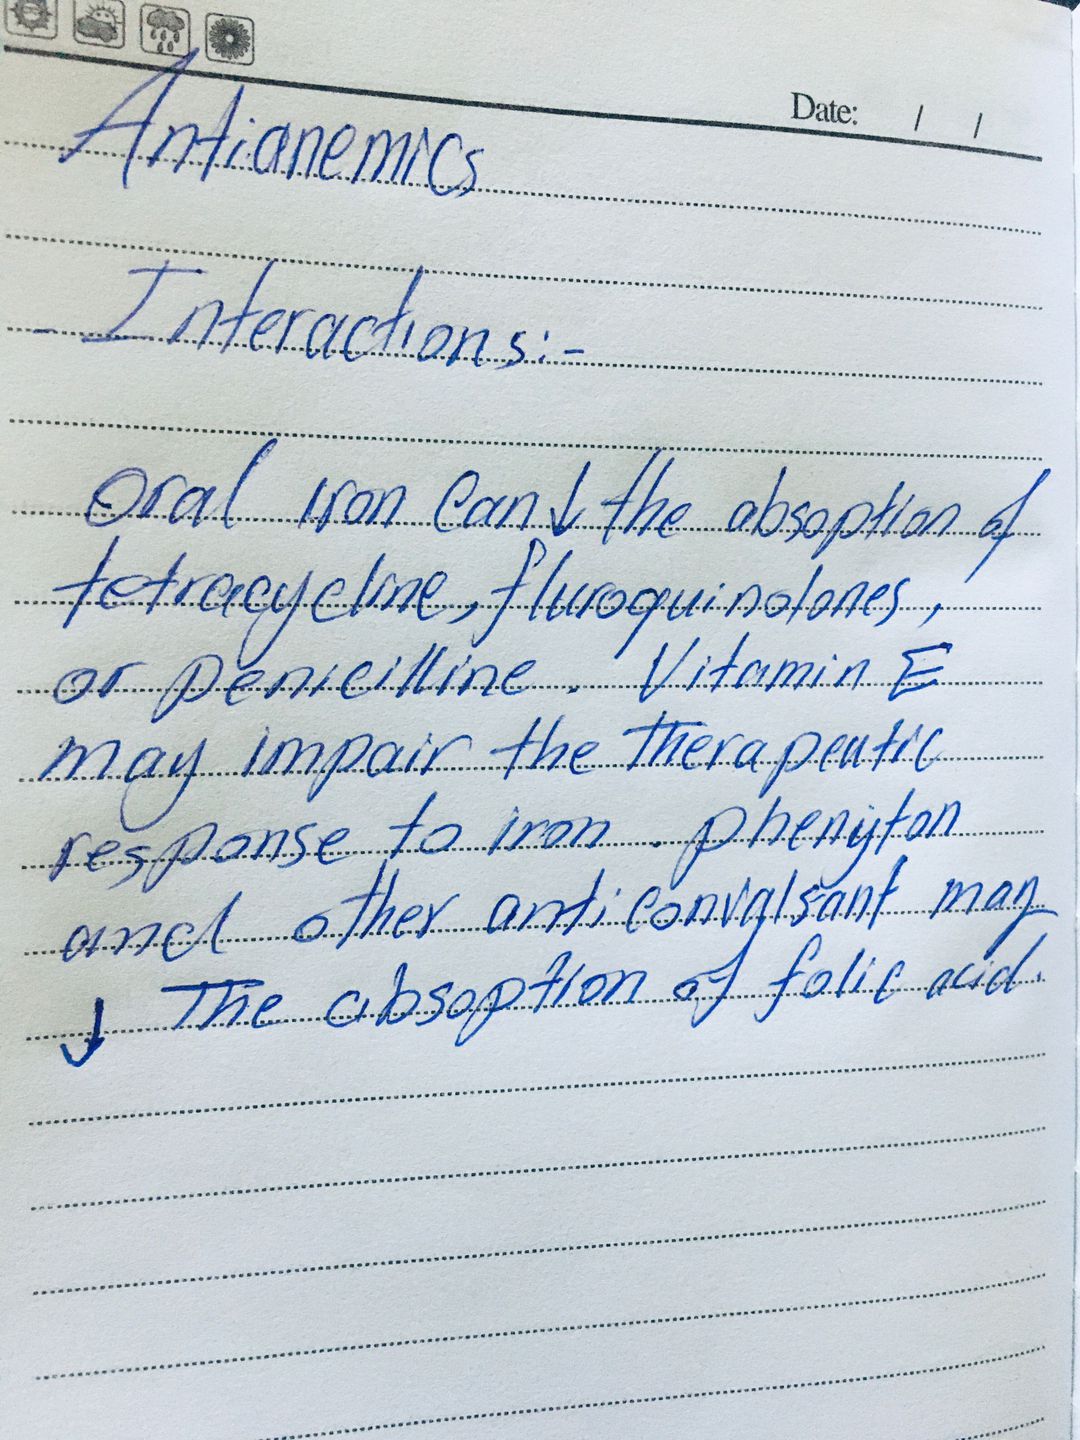 Date: / /
Antianemics
- Interactions:-
Oral iron can ↓ the absoption of
tetracycline, fluroquinolones,
or penicilline. Vitamin E
may impair the therapeutic
response to iron. phenyton
and other anticonvalsant may
↓ The absoption of folic acid.